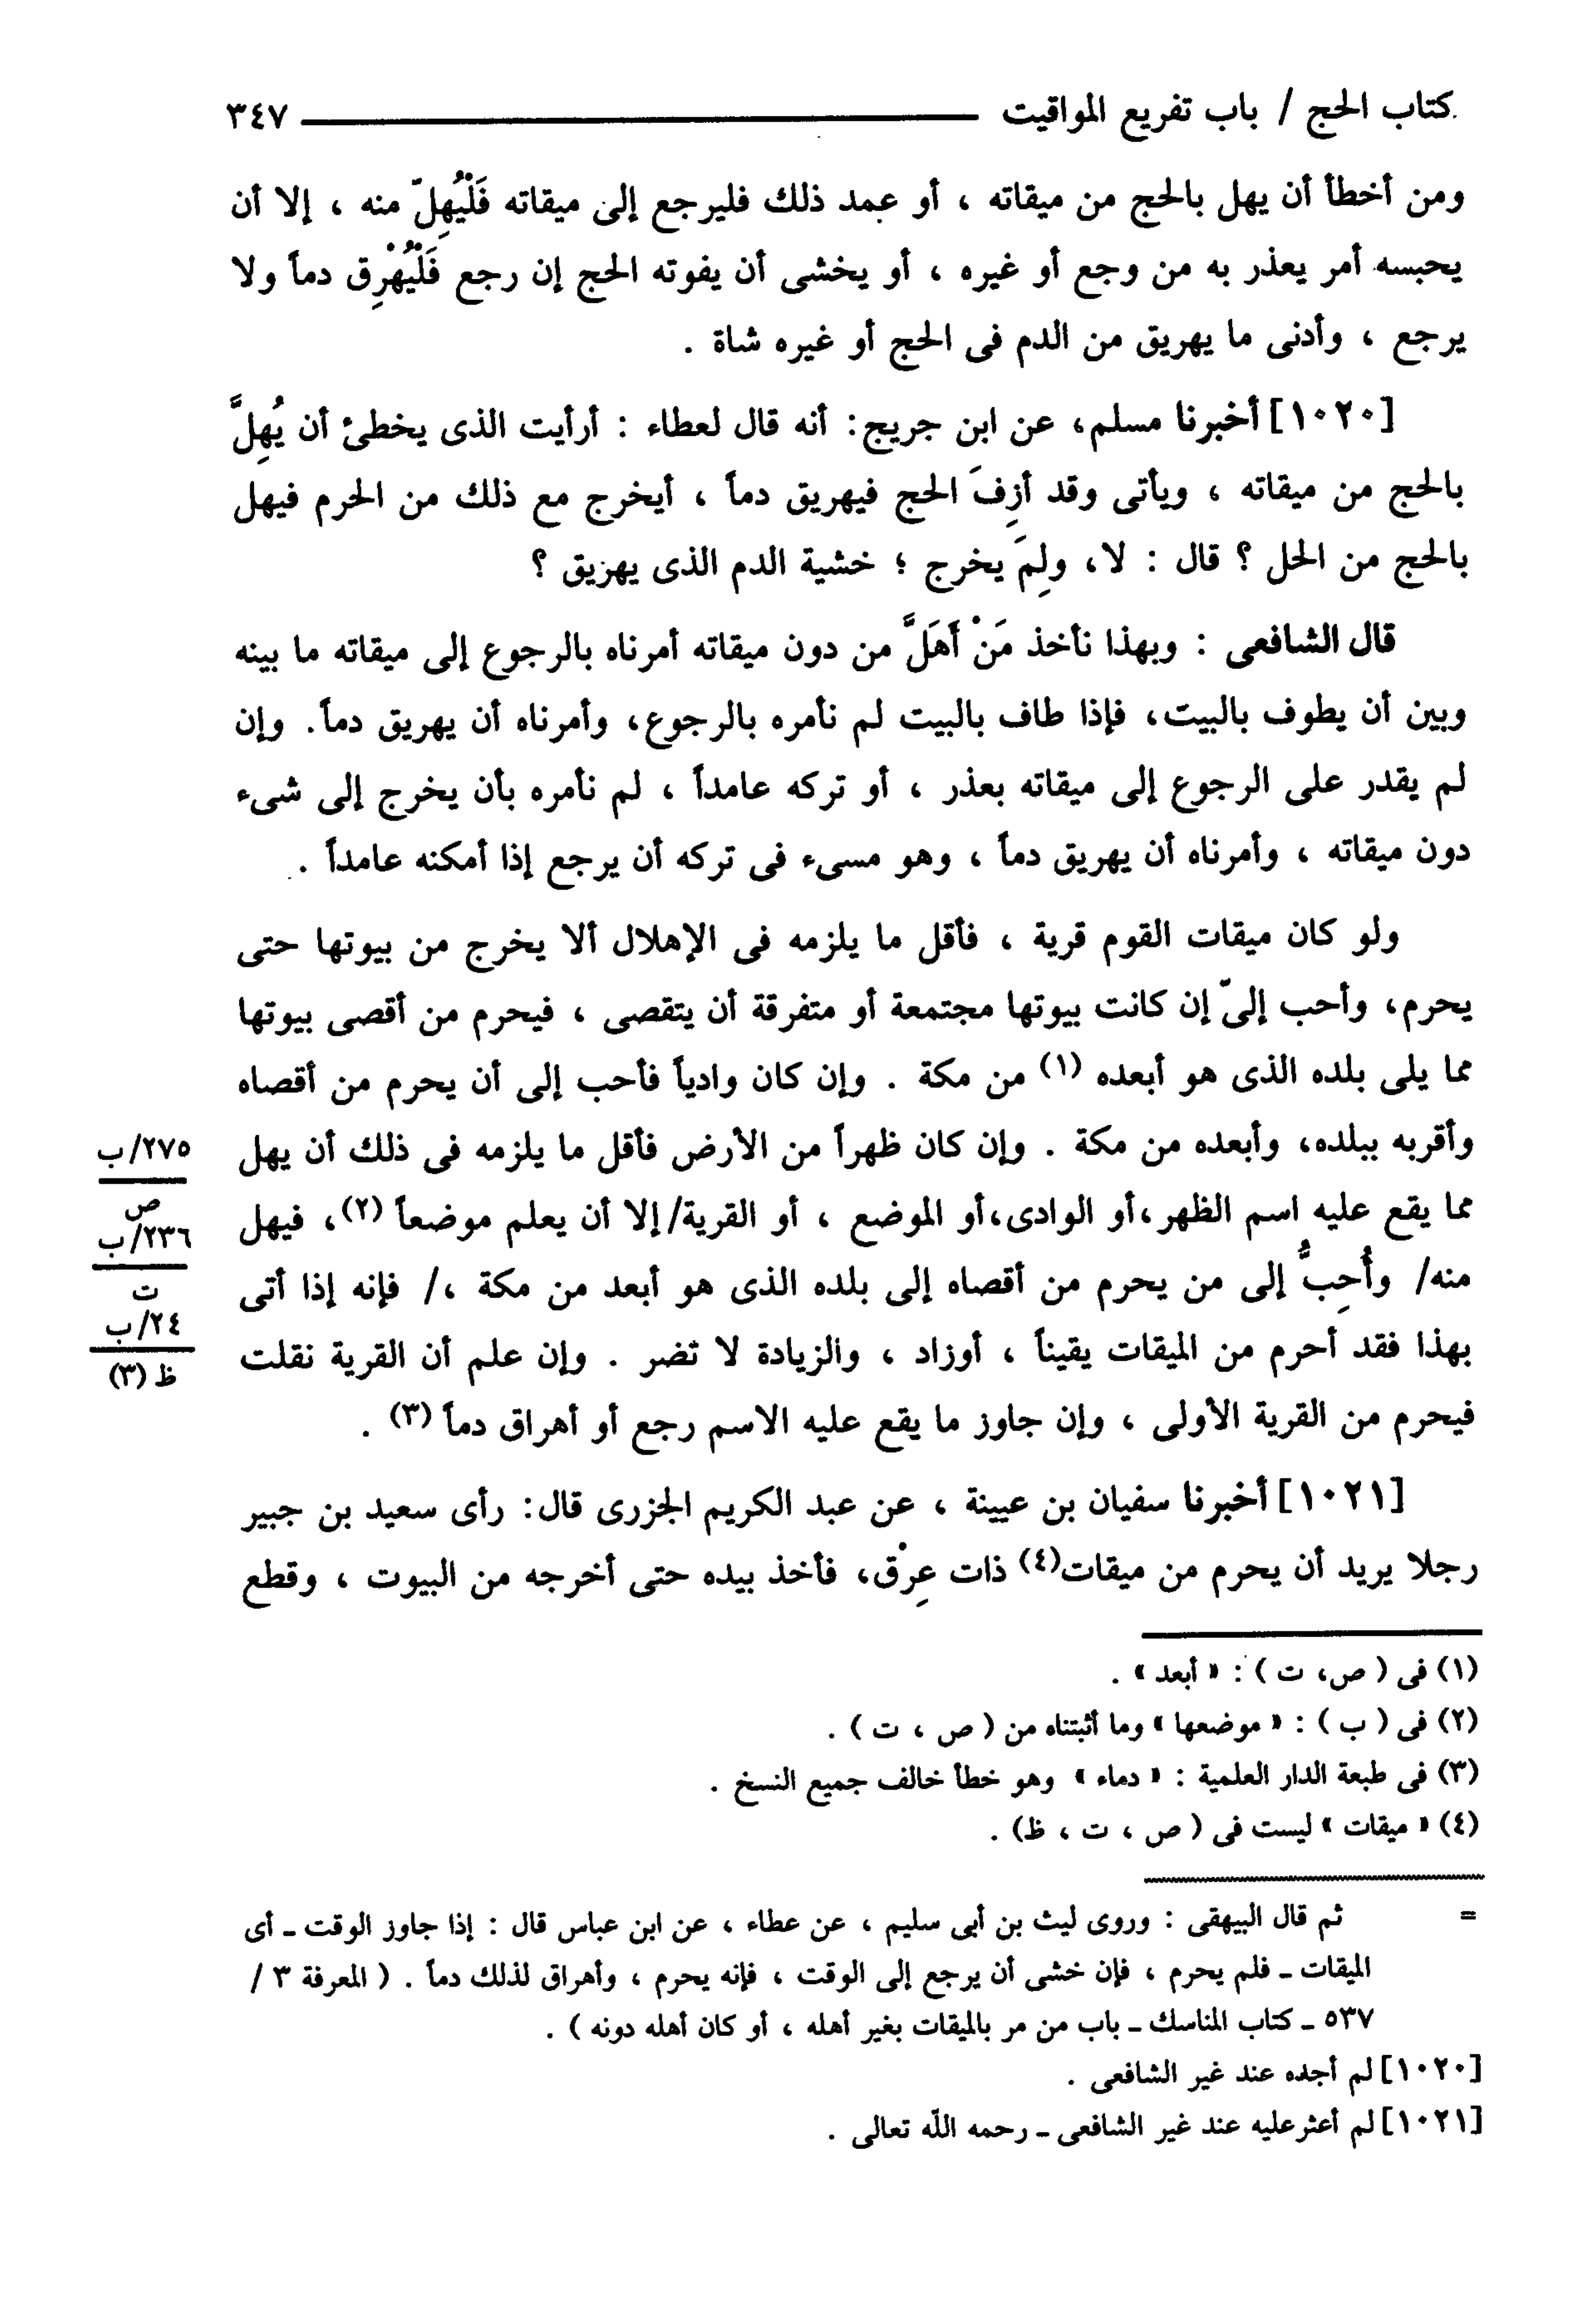 كتاب الحج / باب تفريع المواقيت ــــــــــــ ٣٤٧
ومن أخطأ أن يهل بالحج من ميقاته ، أو عمد ذلك فليرجع إلى ميقاته فَلْيُهِلّ منه ، إلا أن
يحبسه أمر يعذر به من وجع أو غيره ، أو يخشى أن يفوته الحج إن رجع فَلْيُهْرِق دماً ولا
يرجع ، وأدنى ما يهريق من الدم فى الحج أو غيره شاة .
[١٠٢٠] أخبرنا مسلم، عن ابن جريج: أنه قال لعطاء : أرأيت الذى يخطئ أن يُهِلَّ
بالحج من ميقاته ، ويأتى وقد أزِفَ الحج فيهريق دماً ، أيخرج مع ذلك من الحرم فيهل
بالحج من الحل ؟ قال : لا، ولِمَ يخرج ؛ خشية الدم الذى يهريق ؟
قال الشافعى : وبهذا نأخذ مَنْ أَهَلَّ من دون ميقاته أمرناه بالرجوع إلى ميقاته ما بينه
وبين أن يطوف بالبيت، فإذا طاف بالبيت لم نأمره بالرجوع، وأمرناه أن يهريق دماً. وإن
لم يقدر على الرجوع إلى ميقاته بعذر ، أو تركه عامداً ، لم نأمره بأن يخرج إلى شىء
دون ميقاته ، وأمرناه أن يهريق دماً ، وهو مسىء فى تركه أن يرجع إذا أمكنه عامداً .
ولو كان ميقات القوم قرية ، فأقل ما يلزمه فى الإهلال ألا يخرج من بيوتها حتى
يحرم، وأحب إلىّ إن كانت بيوتها مجتمعة أو متفرقة أن يتقصى ، فيحرم من أقصى بيوتها
مما يلى بلده الذى هو أبعده (١) من مكة . وإن كان وادياً فأحب إلى أن يحرم من أقصاه
وأقربه ببلده، وأبعده من مكة . وإن كان ظهراً من الأرض فأقل ما يلزمه فى ذلك أن يهل
مما يقع عليه اسم الظهر،أو الوادى،أو الموضع ، أو القرية/إلا أن يعلم موضعاً (٢)، فيهل
منه/ وأُحِبُّ إلى من يحرم من أقصاه إلى بلده الذى هو أبعد من مكة ،/ فإنه إذا أتى
بهذا فقد أحرم من الميقات يقيناً ، أوزاد ، والزيادة لا تضر . وإن علم أن القرية نقلت
فيحرم من القرية الأولى ، وإن جاوز ما يقع عليه الاسم رجع أو أهراق دماً (٣) .
[١٠٢١] أخبرنا سفيان بن عيينة ، عن عبد الكريم الجزرى قال: رأى سعيد بن جبير
رجلا يريد أن يحرم من ميقات(٤) ذات عِرْق، فأخذ بيده حتى أخرجه من البيوت ، وقطع
٢٧٥/ب
ص
٢٣٦/ب
ت
٢٤/ب
ظ (٣)
(١) فى ( ص، ت ) : « أبعد » .
(٢) فى ( ب ) : « موضعها » وما أثبتناه من ( ص ، ت ) .
(٣) فى طبعة الدار العلمية : « دماء » وهو خطأ خالف جميع النسخ .
(٤) « ميقات » ليست فى ( ص ، ت ، ظ) .
= ثم قال البيهقى : وروى ليث بن أبى سليم ، عن عطاء ، عن ابن عباس قال : إذا جاوز الوقت ـ أى
الميقات ـ فلم يحرم ، فإن خشى أن يرجع إلى الوقت ، فإنه يحرم ، وأهراق لذلك دماً . ( المعرفة ٣ /
٥٣٧ ـ كتاب المناسك ـ باب من مر بالميقات بغير أهله ، أو كان أهله دونه ) .
[١٠٢٠] لم أجده عند غير الشافعى .
[١٠٢١] لم أعثرعليه عند غير الشافعى ـ رحمه اللّه تعالى .